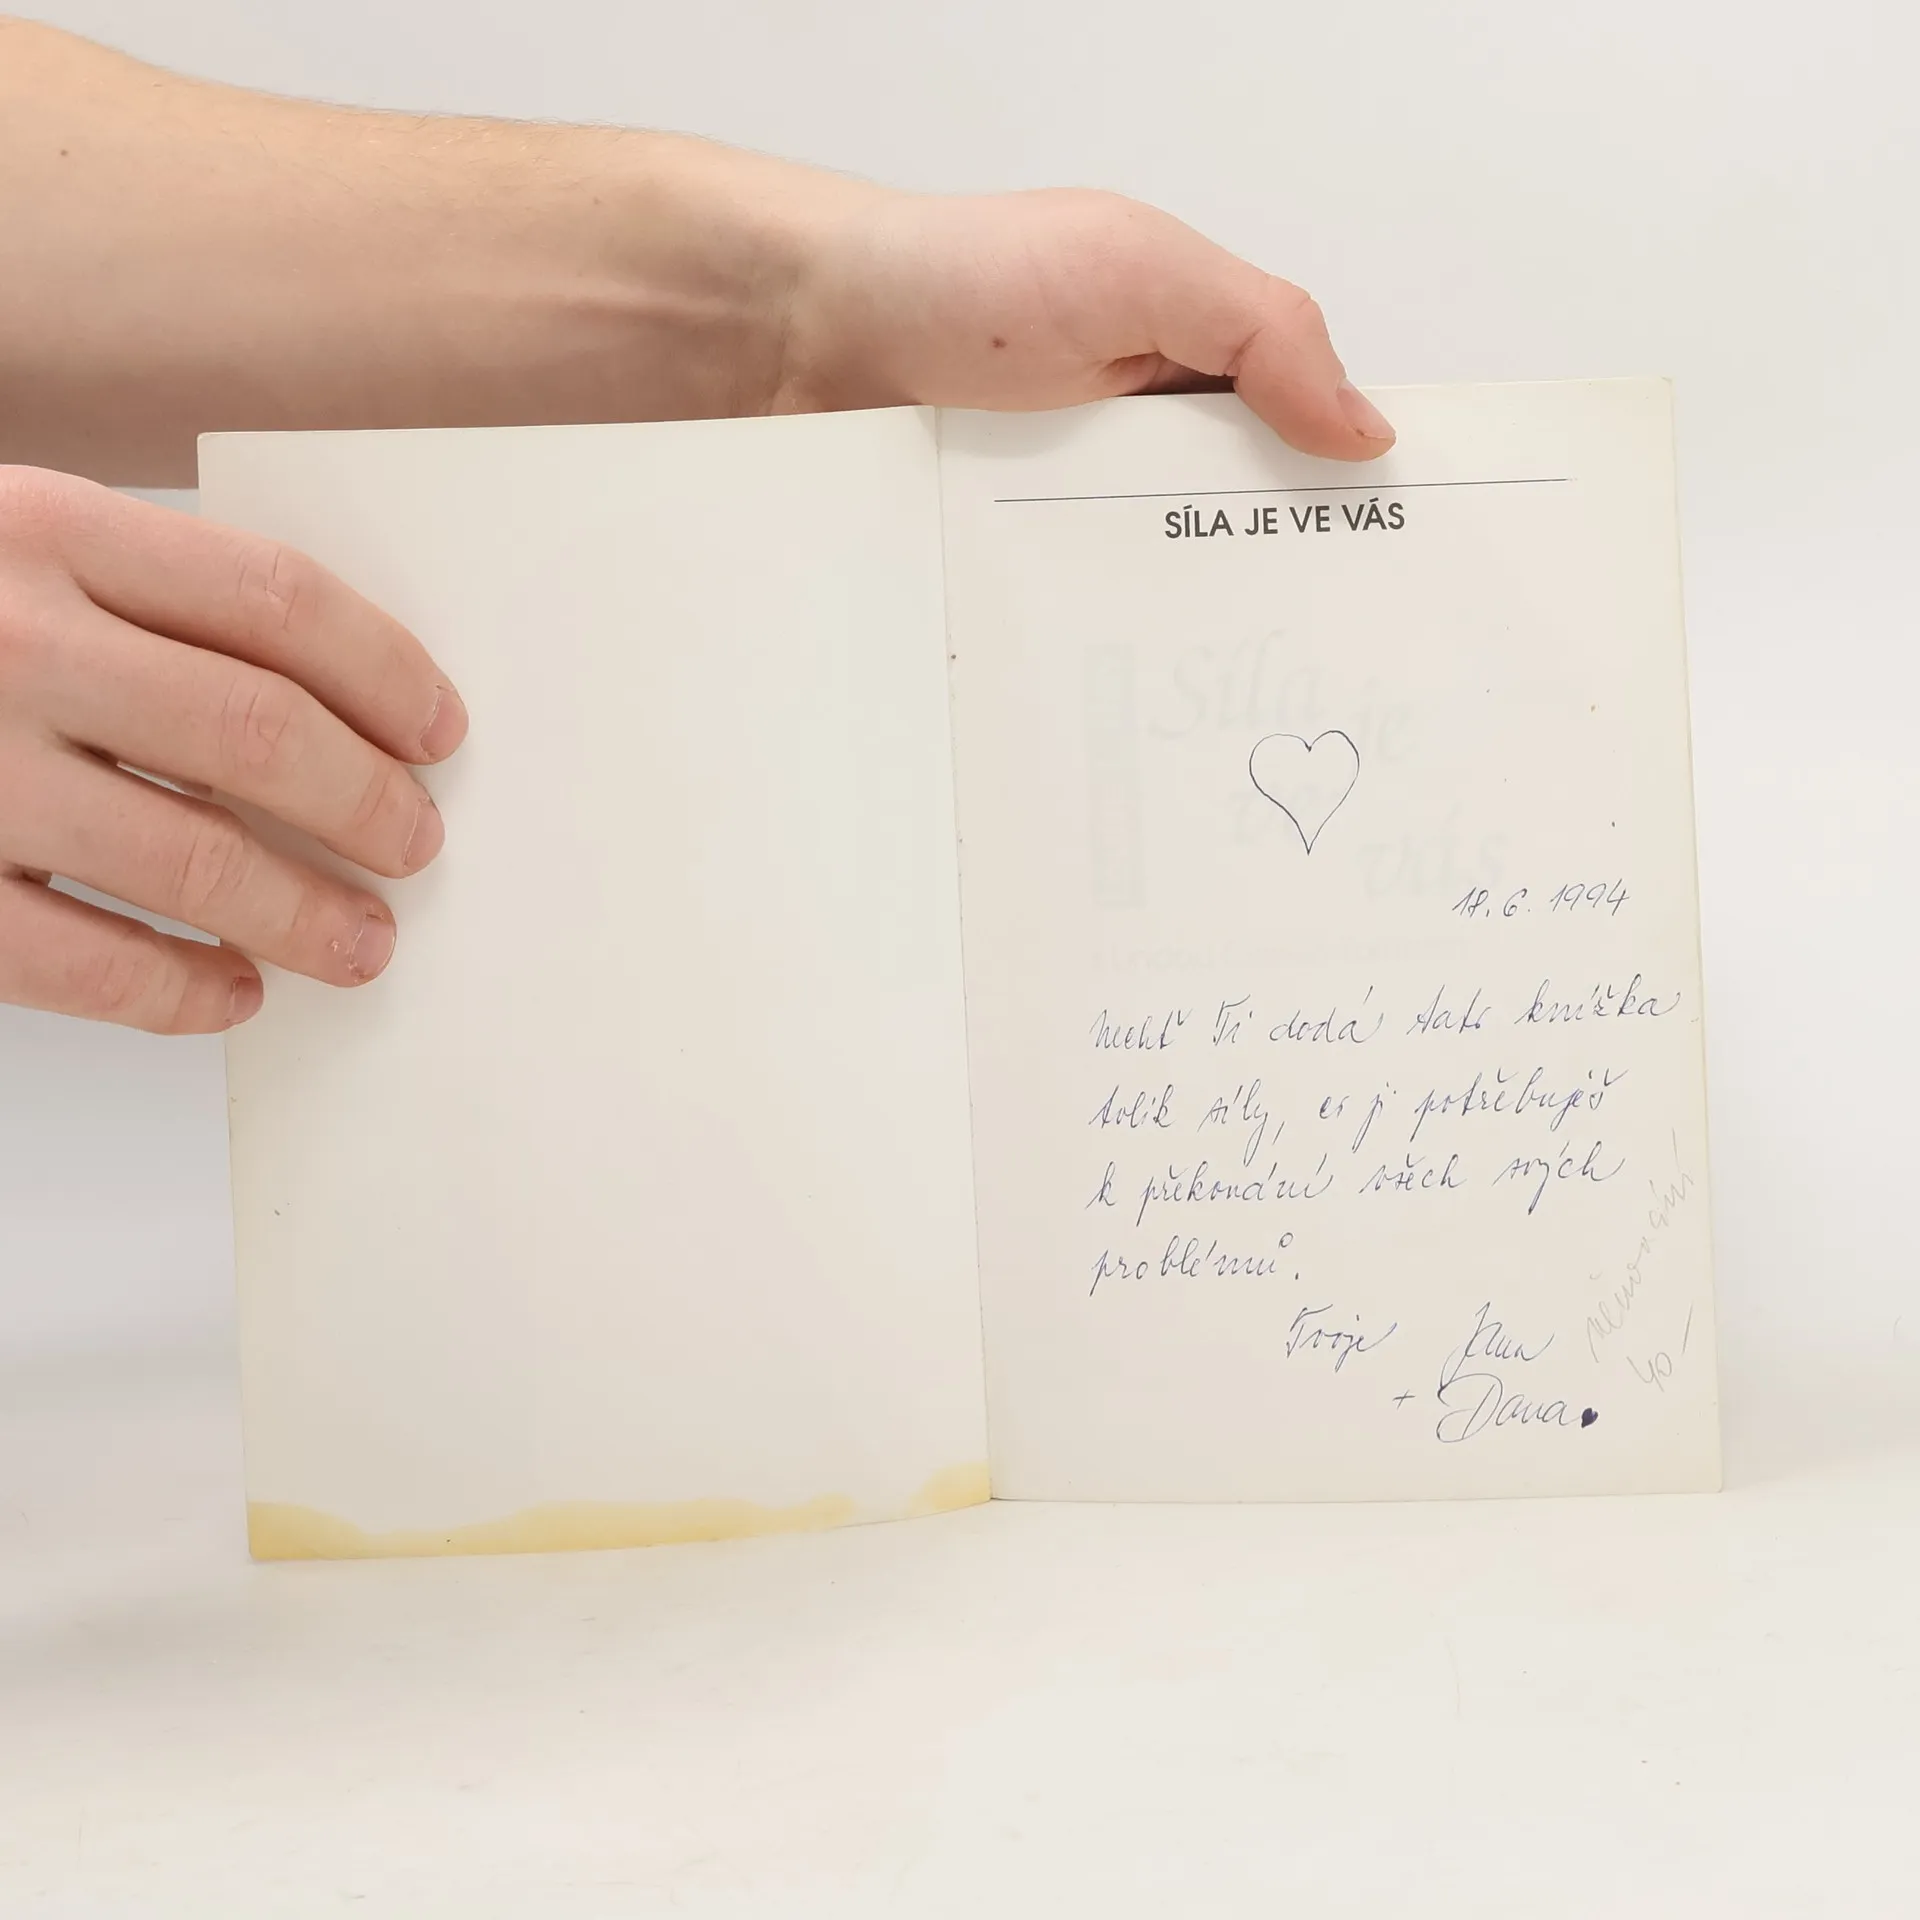 SÍLA JE VE VÁS
Síla je
ve
vás
18. 6. 1994
Nechť Ti dodá tato knížka
tolik síly, co jí potřebuješ
k překonání všech svých
problémů.
Tvoje Jana
+ Dana
věnování
40 –